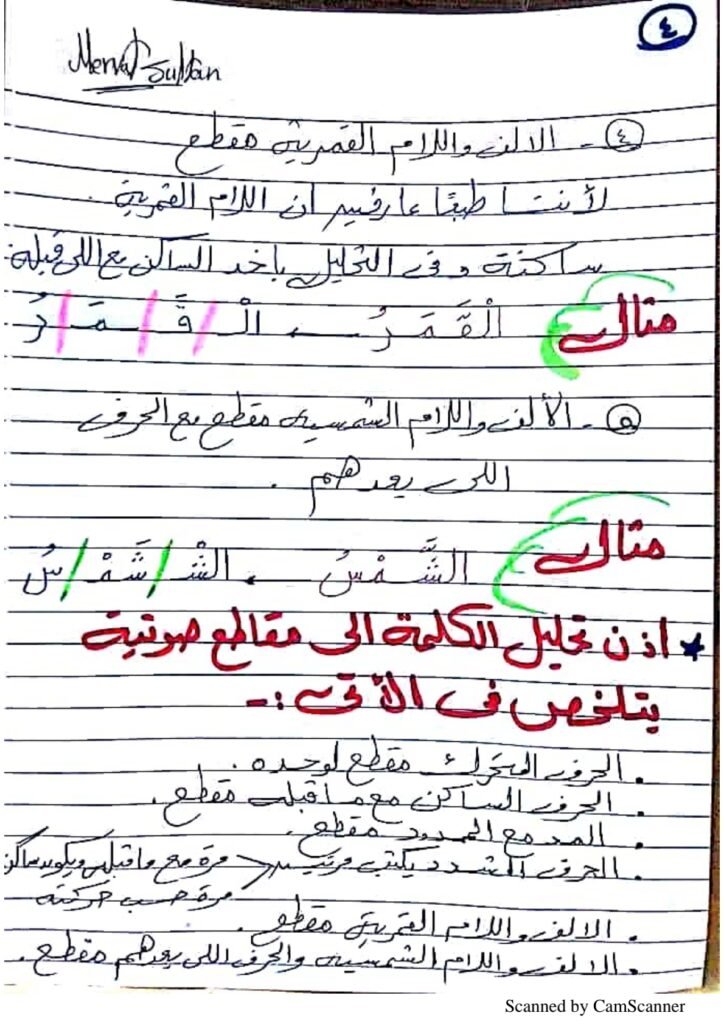 ٤
Mervat Sultan
٤- الالف واللام القمرية مقطع
لأننا طبعًا عارفين ان اللام القمرية
ساكنة وفى التحليل باخد الساكن مع اللى قبله
مثال الْقَمَرُ ← الْـ / قَـ / مَـ / رُ
٥- الألف واللام الشمسيه مقطع مع الحرف
اللى بعدهم .
مثال الشَّمْسُ ← الشْـ / شَمْـ / سُ
* اذن تحليل الكلمة الى مقاطع صوتية
يتلخص فى الأتى :-
. الحرف المتحرك مقطع لوحده .
. الحرف الساكن مع ما قبله مقطع .
. المد مع الممدود مقطع .
. الحرف المشدد يكتب مرتين < مرة مع ما قبله ويكون ساكن
مرة حسب حركته
. الالف واللام القمرية مقطع .
. الالف واللام الشمسيه والحرف اللى بعدهم مقطع .
Scanned by CamScanner